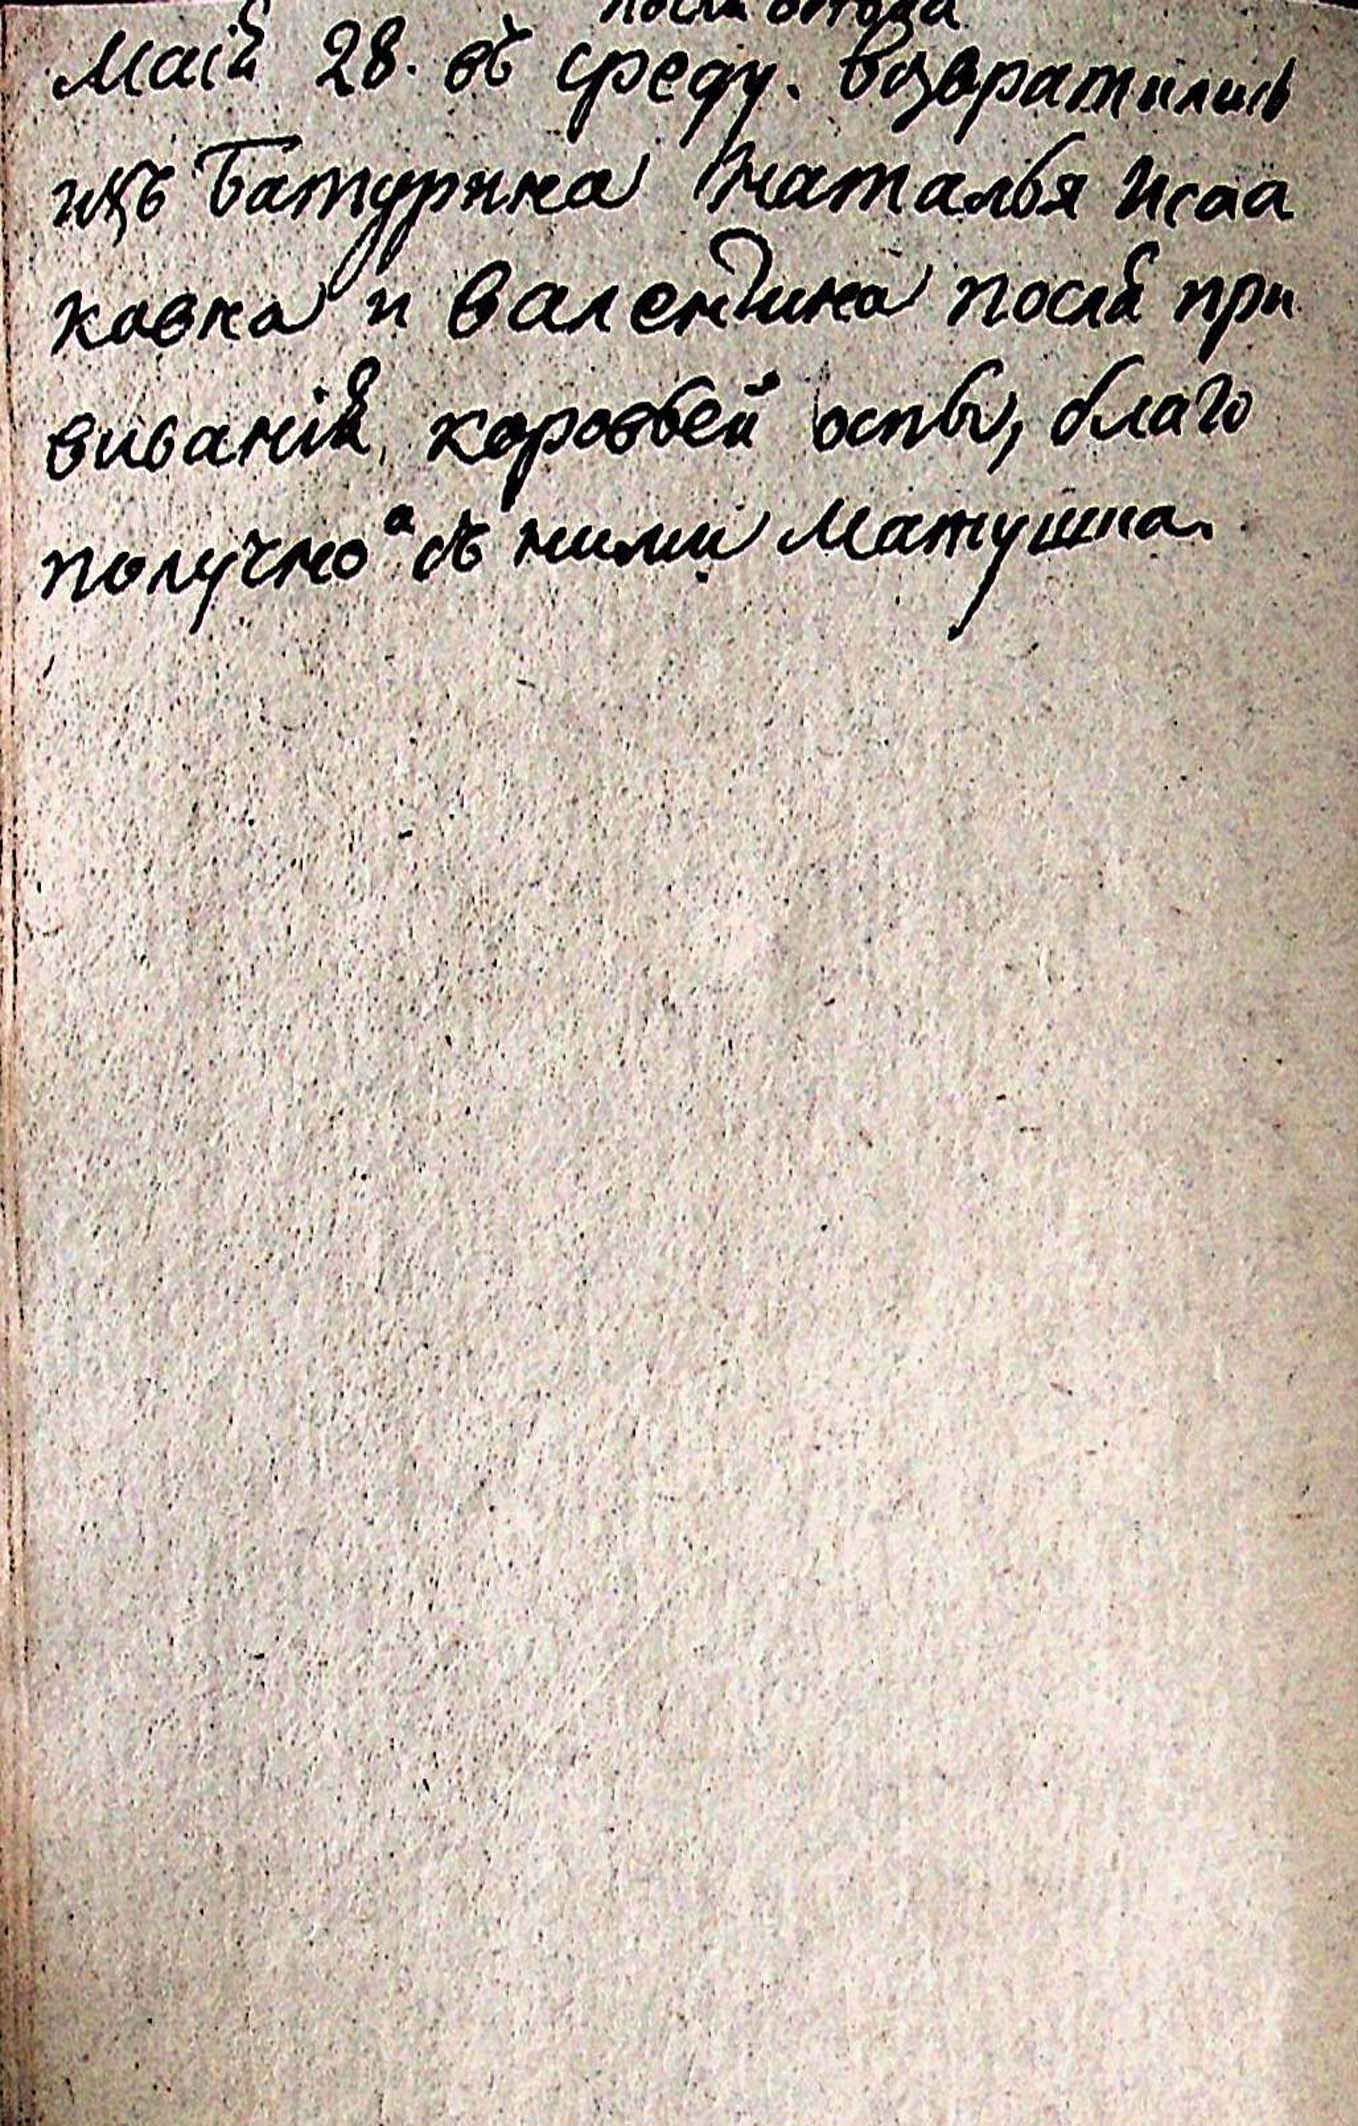 после обеда
Маiя 28. въ среду. возвратились
изъ Батурина Наталья Исаа
ковна и валентина посля при
виванiя, коровьей оспы, благо
получно а съ ними Матушка.